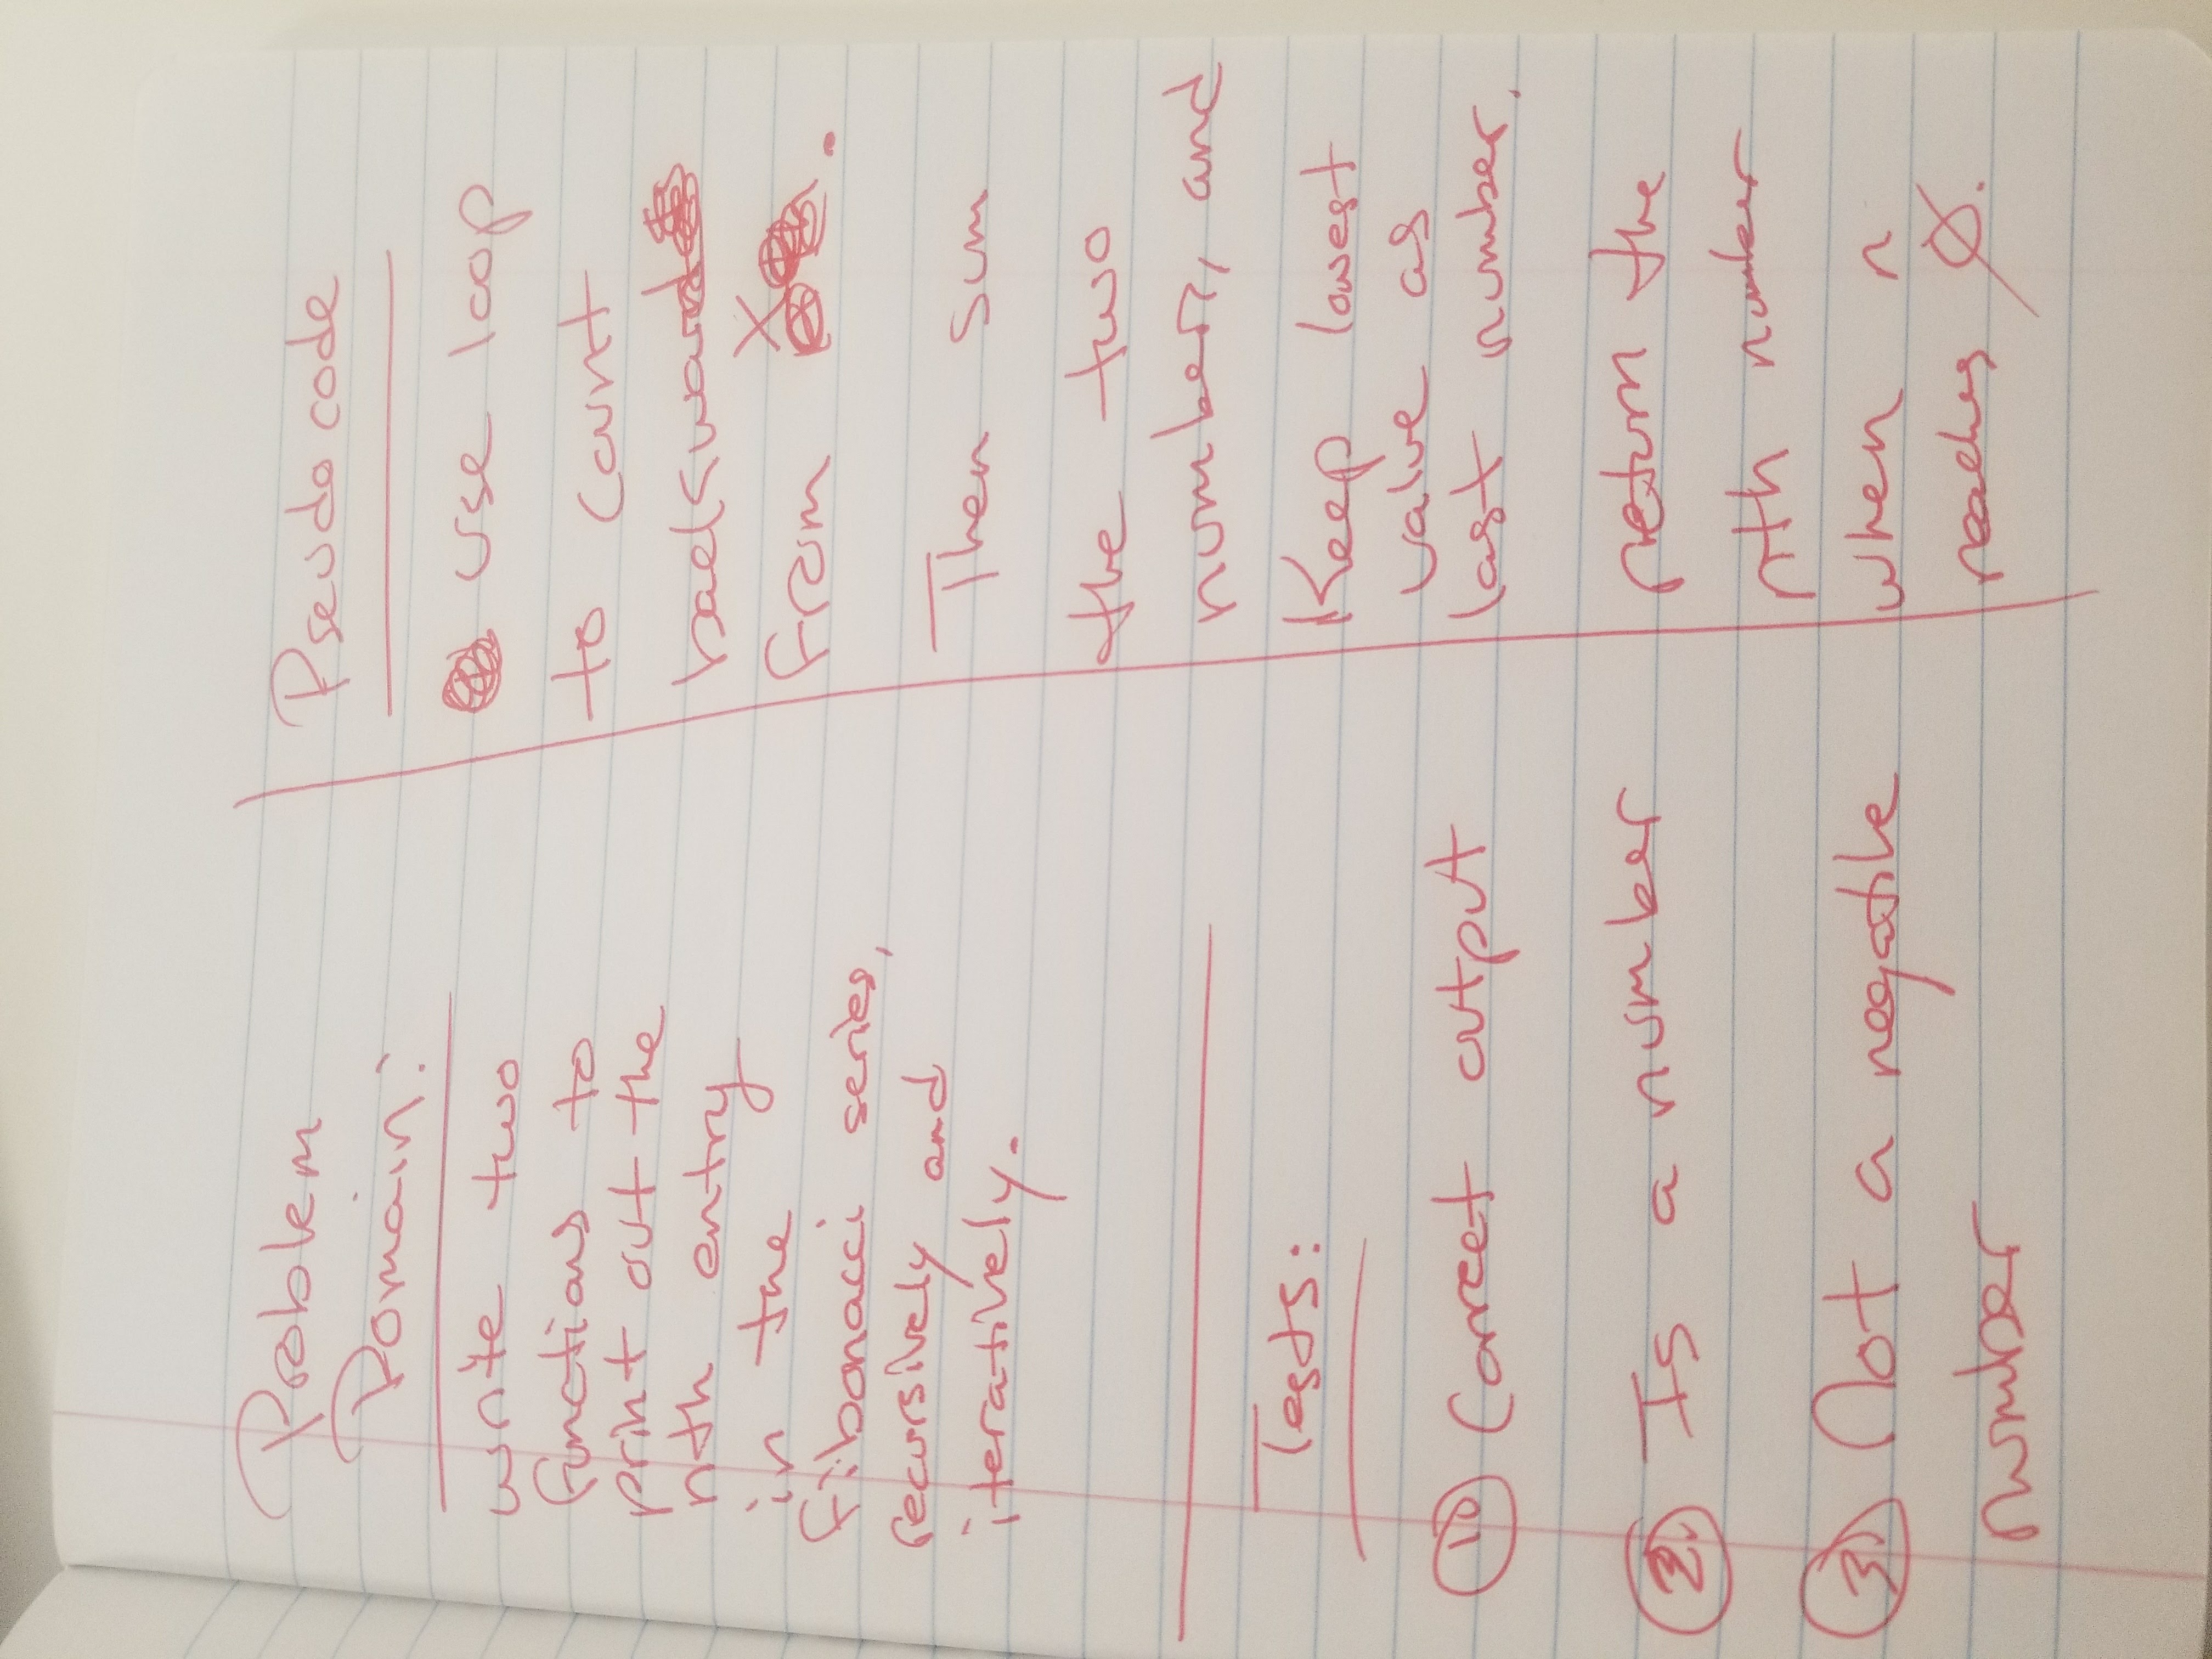 Problem
Domain:
write two
functions to
print out the
nth entry
in the
fibonacci series,
recursively and
iteratively.
Tests:
1) Correct output
2. Is a number
3) Not a negative
number
Pseudo code
use loop
to count
backward
from X.
Then sum
the two
numbers, and
Keep lowest
value as
last number.
return the
nth number
when n
reaches 0.